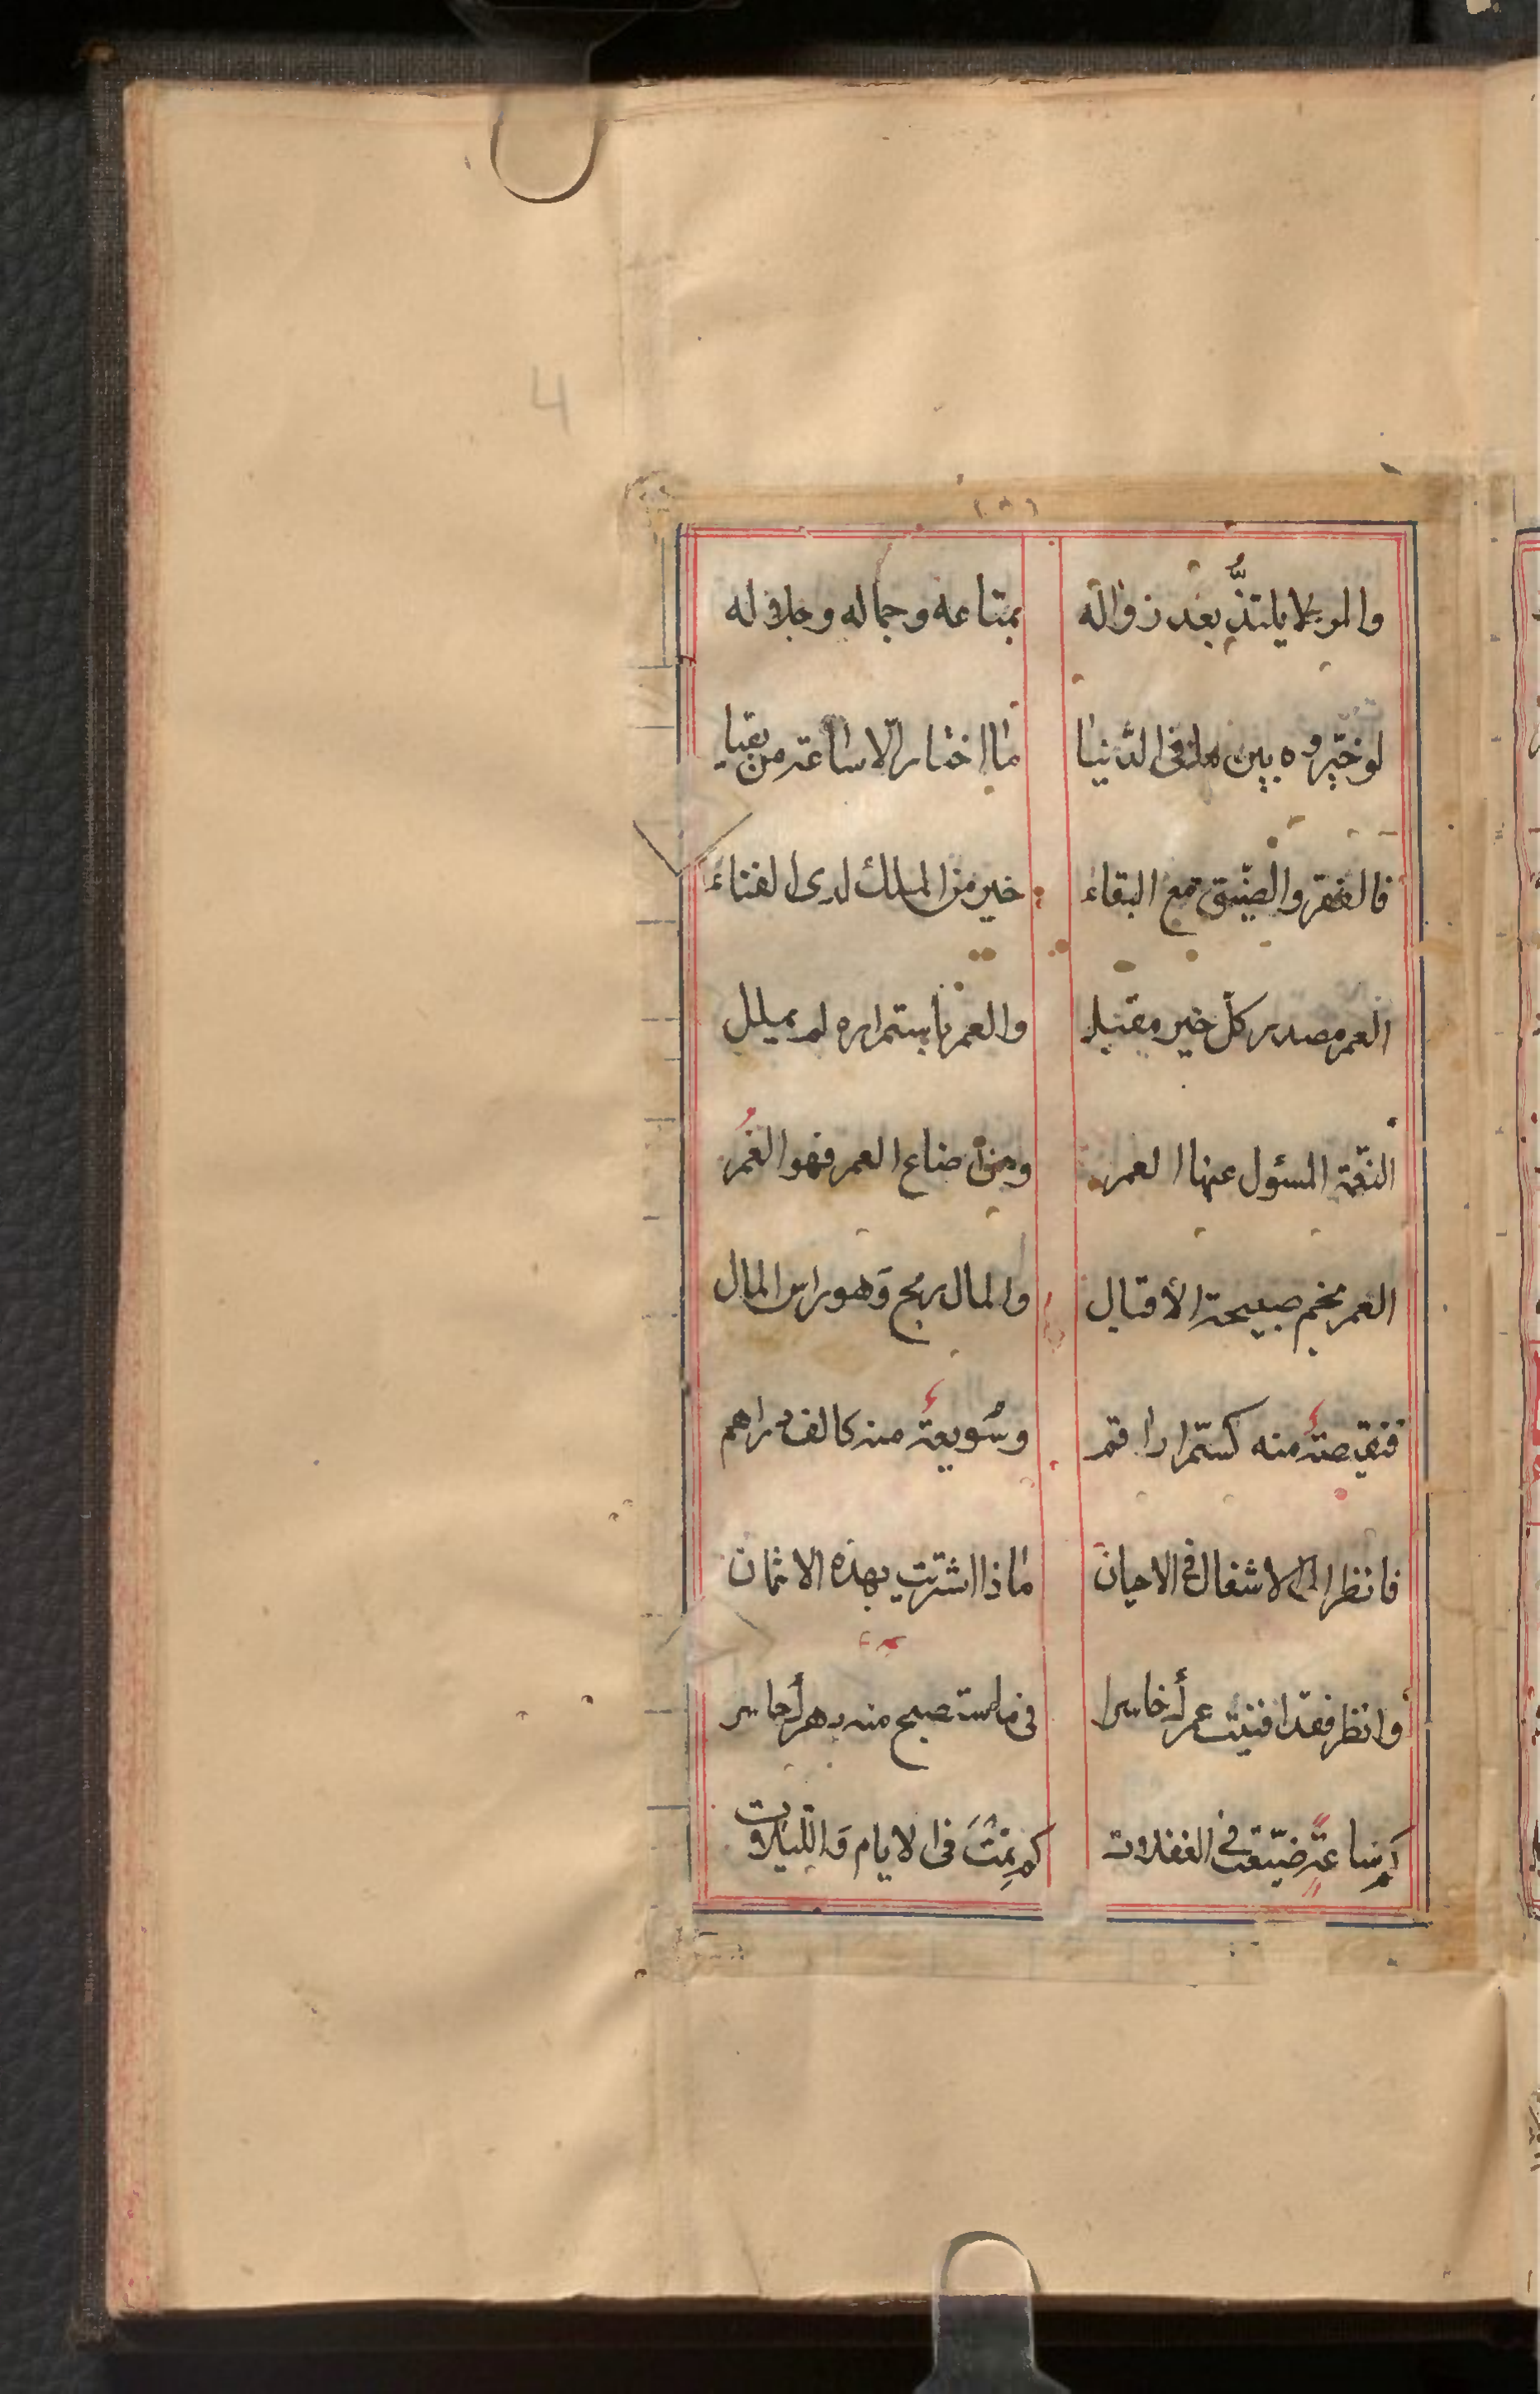 4
(٨)
والمرء لا يلتذّ بعد زواله بمتاعه وجماله وجلاله
لو خيّروه بين ما فى الدّنيا ما اختار الّا ساعة من بقيا
فالفقر والضيّق مع البقاء خير من الملك لدى الفناء
العمر مصدر كلّ خير مقبل والعمر باستمراره لم يملل
النعّمة المسئول عنها العمر ومن اضاع العمر فهو الغُمر
العمر نجم صبيحة الأقبال والمال ربح وَهو راس المال
فنقيصةٌ منه كستمرار اقم وسُويعةٌ منه كالف دراهم
فانظر الى الاشغال فى الاحيان ماذا اشتريت بهذه الاثمان
وانظر فقد افنيت عمرًا خاسرا فى ما ستصبح منه دهرًا حاسر
كم ساعةٍ ضيّعت فى الغفلات كم نِمْتَ فى الايام وَاللّيلات